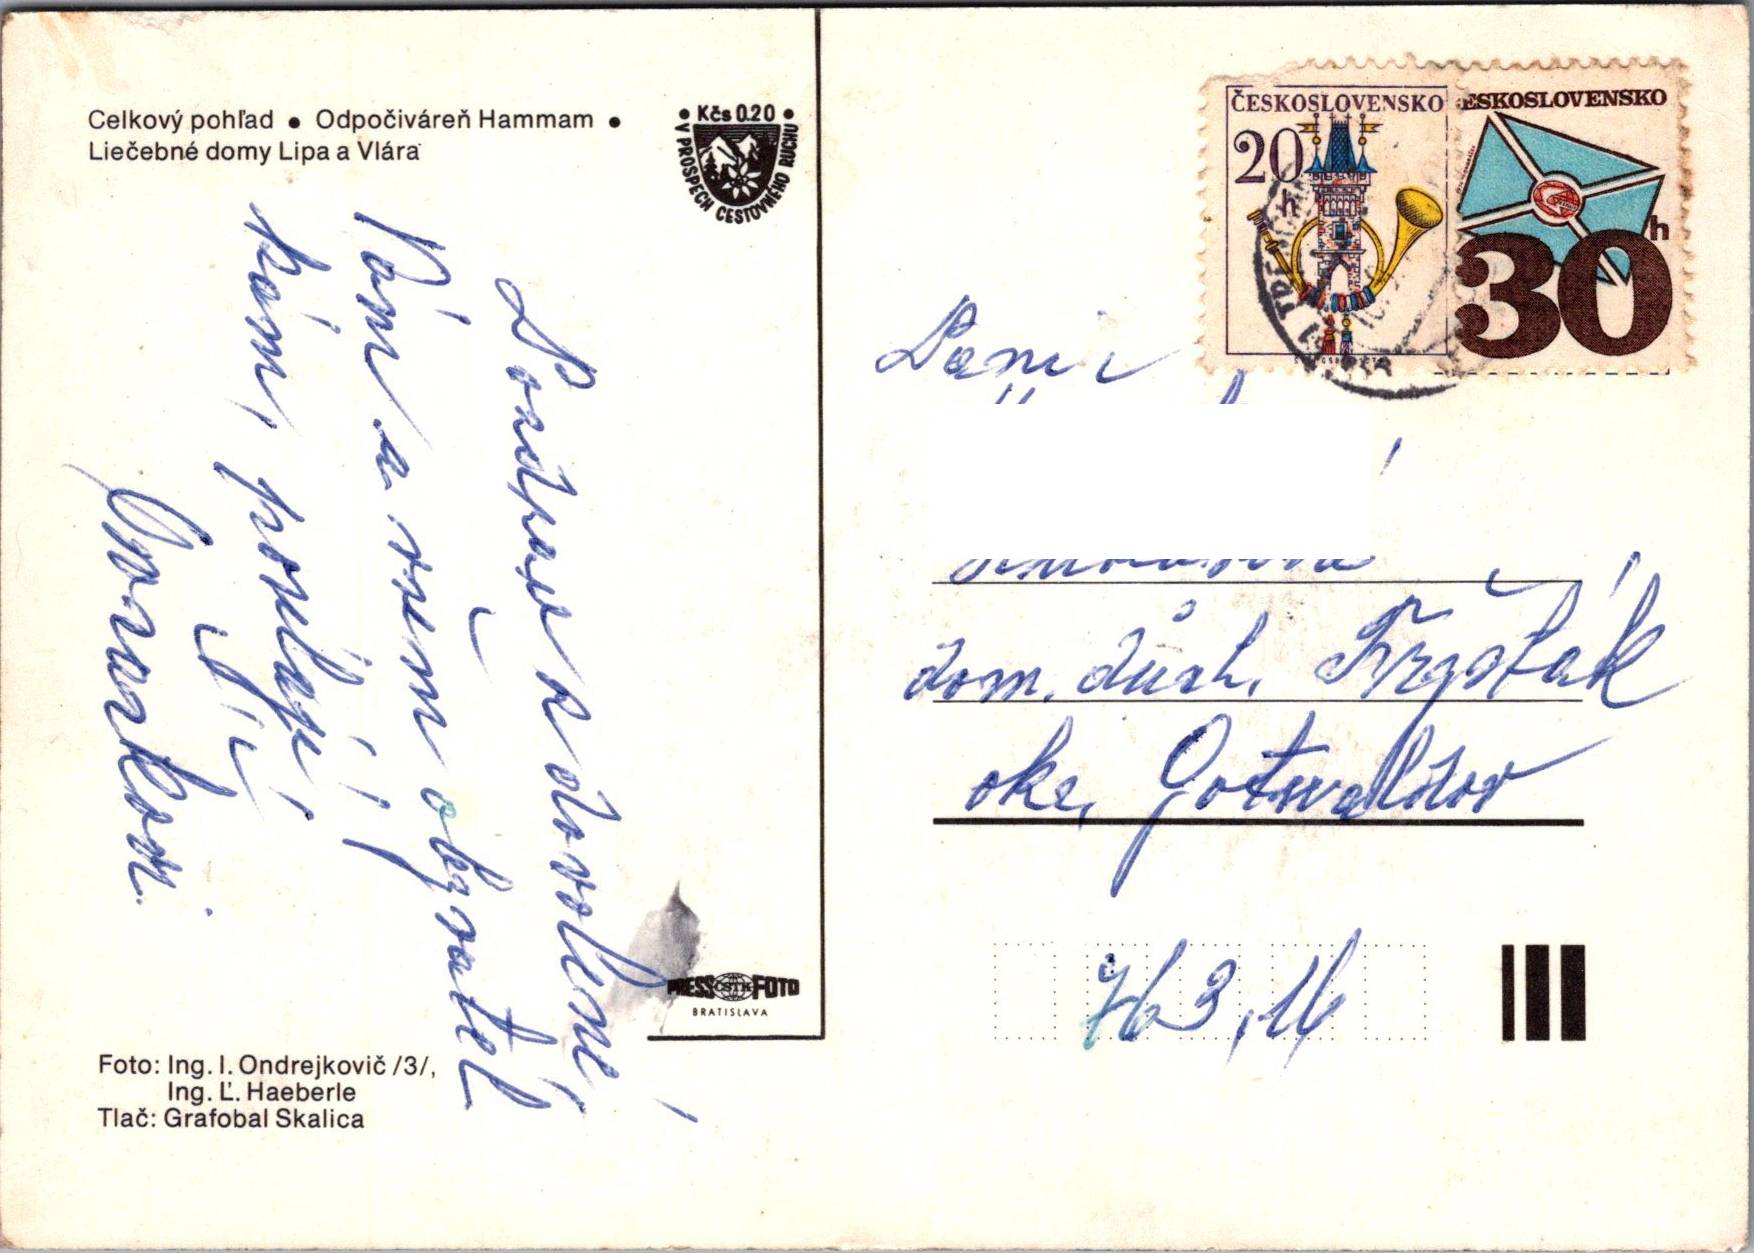 Celkový pohľad • Odpočiváreň Hammam •
Liečebné domy Lipa a Vlára
• Kčs 0.20 •
V PROSPECH CESTOVNÉHO RUCHU
Pozdrav z dovolené
Vám a všem obyvatel
kám, posílají
PRESS ČSTK FOTO
BRATISLAVA
Foto: Ing. I. Ondrejkovič /3/,
Ing. Ľ. Haeberle
Tlač: Grafobal Skalica
ČESKOSLOVENSKO
20 h
ESKOSLOVENSKO
30 h
Paní
dom. důch. Fryšták
okr. Gotwaldov
763 16